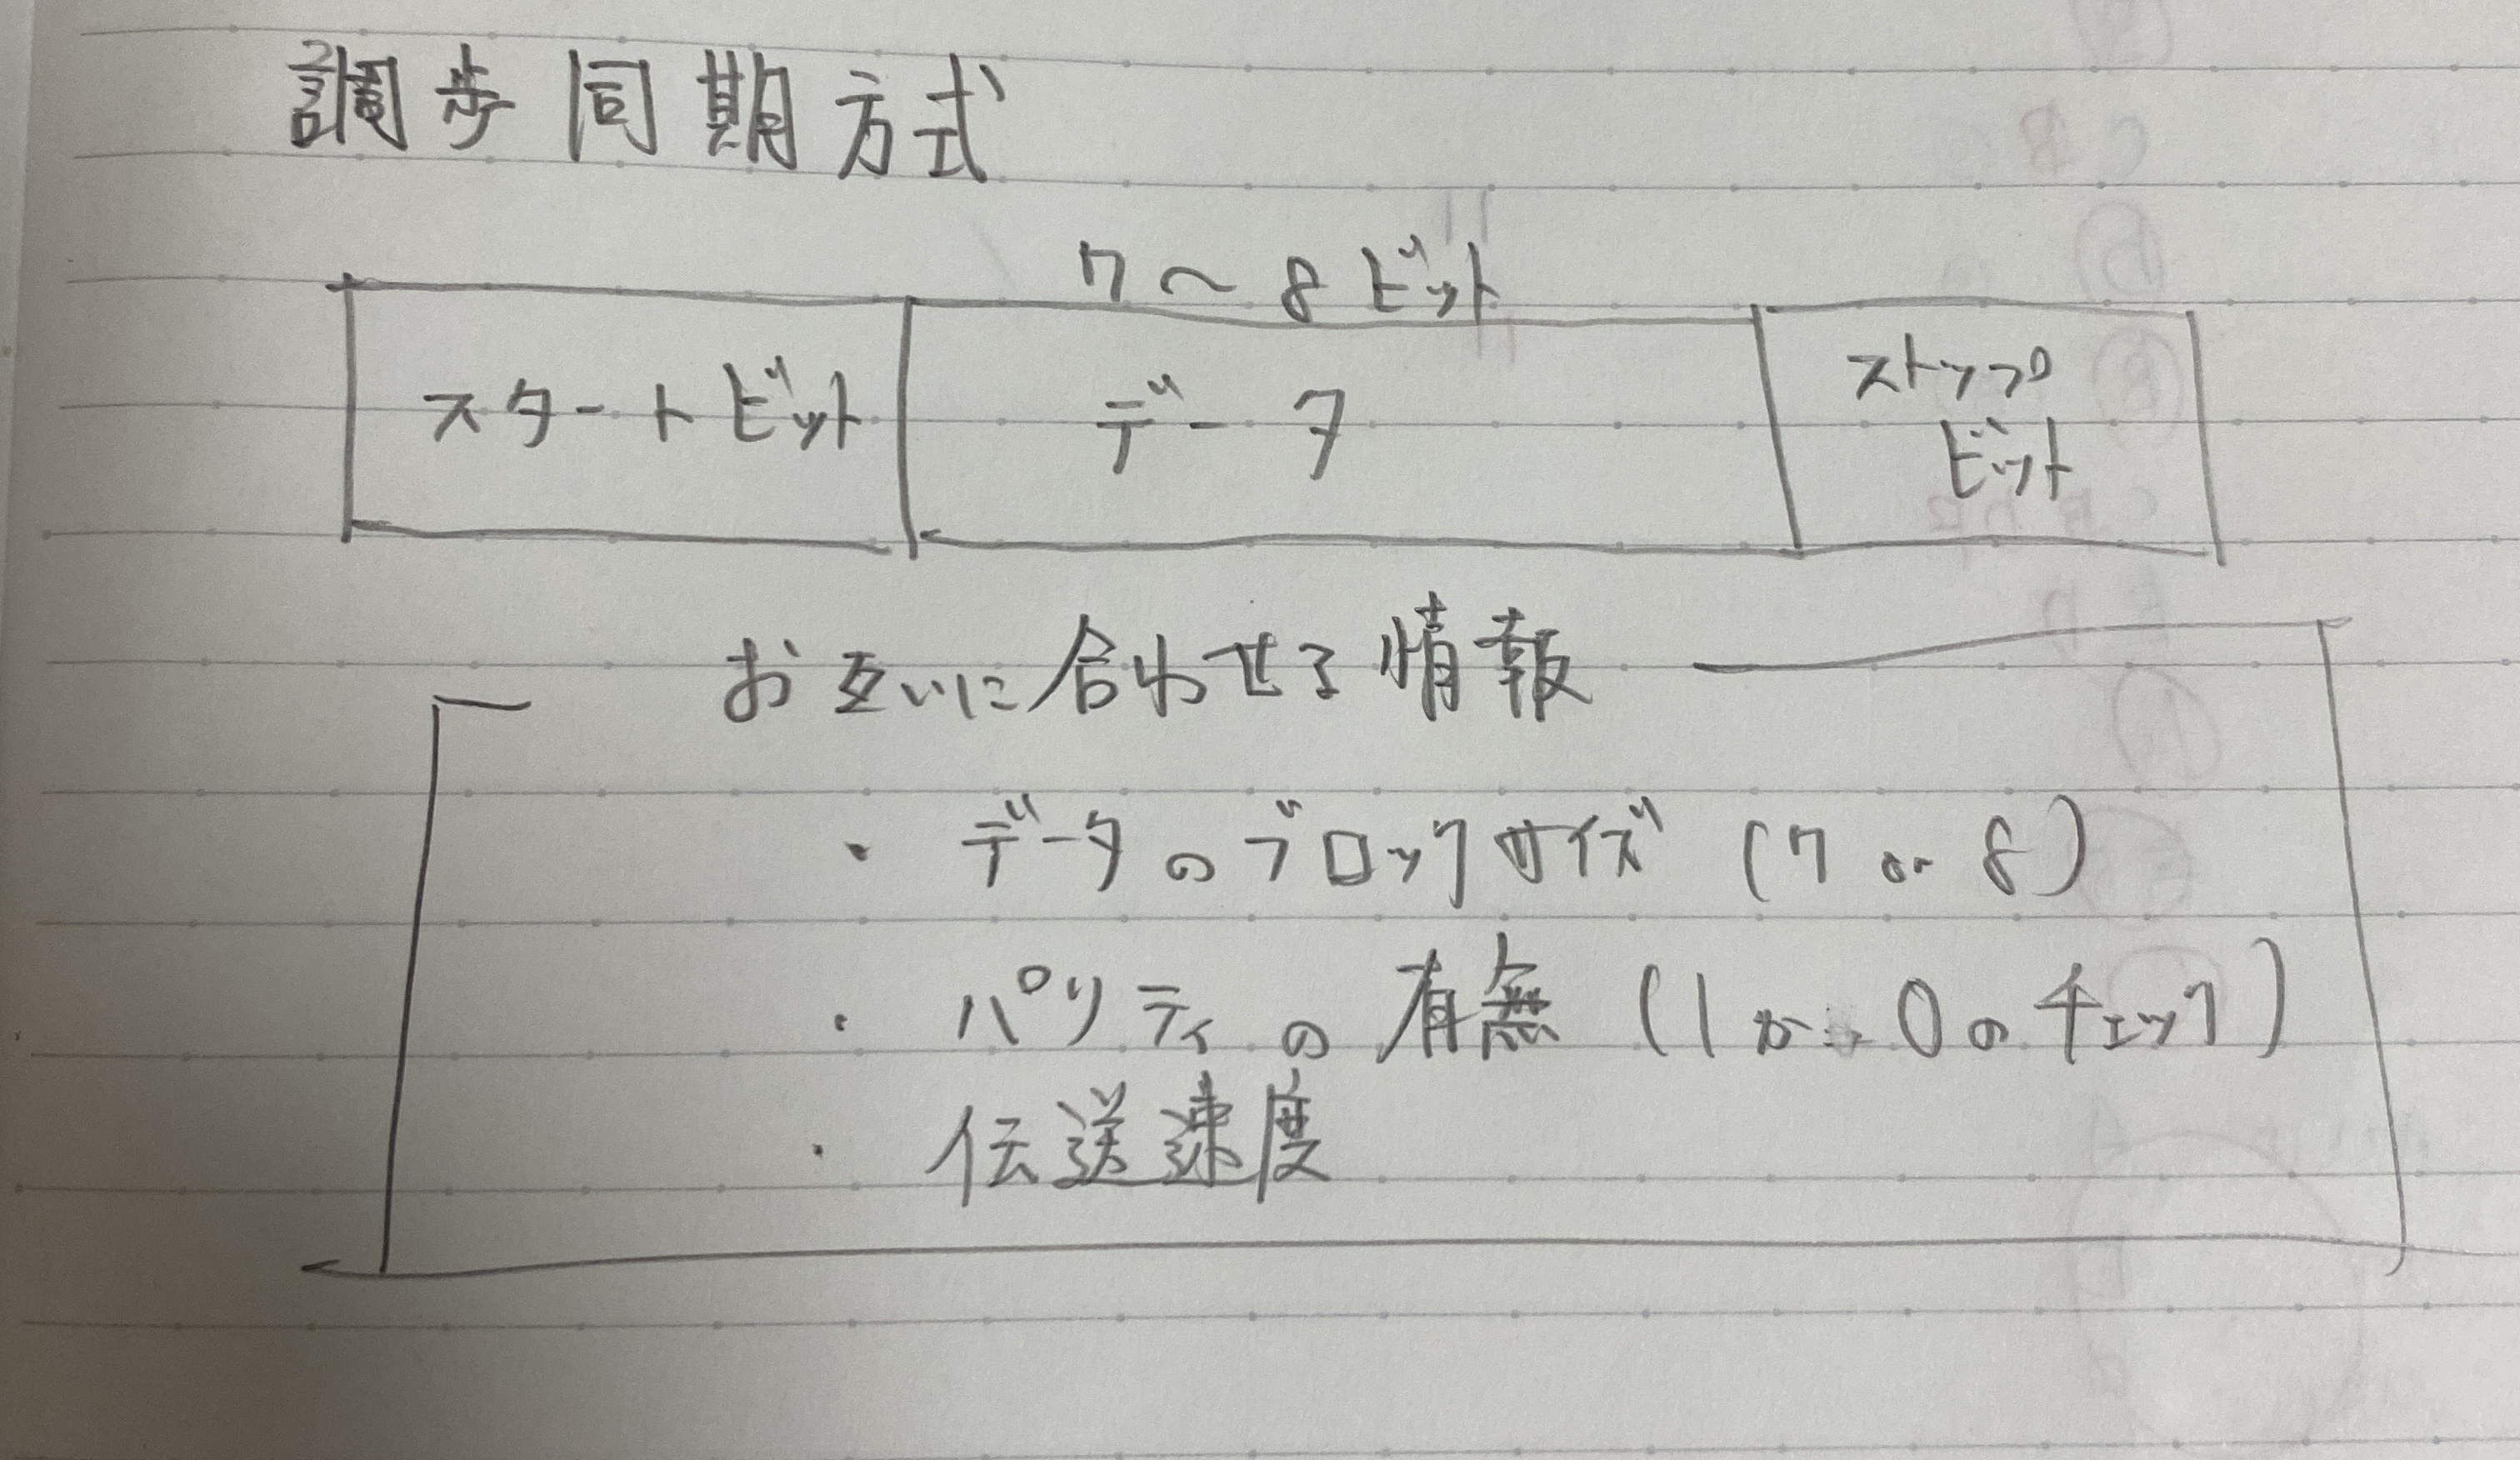 調歩同期方式
7〜8ビット
スタートビット
データ
ストップ
ビット
お互いに合わせる情報
・データのブロックサイズ(7 or 8)
・パリティの有無(1か0のチェック)
・伝送速度